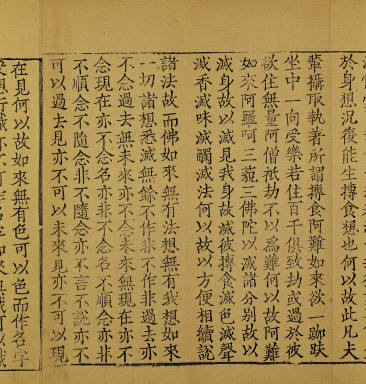 於身想況復能生摶食想也何以故此凡夫
輩攝取執著所謂摶食阿難如來欲一跏趺
坐中一向受樂若住百千俱致劫或過於彼
欲住無量阿僧祇劫不以為難何以故阿難
如來阿羅呵三藐三佛陀以滅諸分別故以
滅身故以滅見我身故滅彼摶食滅色滅聲
滅香滅味滅觸滅法何以故以方便相續說
諸法故而佛如來無有法想無有我想如來
一切諸想悉滅無餘不作非不作非過去亦
不念過去無未來亦不念未來無現在亦不
念現在亦不念名亦非不念名不順念亦非
不順念不隨念非不隨念亦不言不說亦不
可以過去見亦不可以未來見亦不可以現
在見何以故如來無有色可以色而作名字